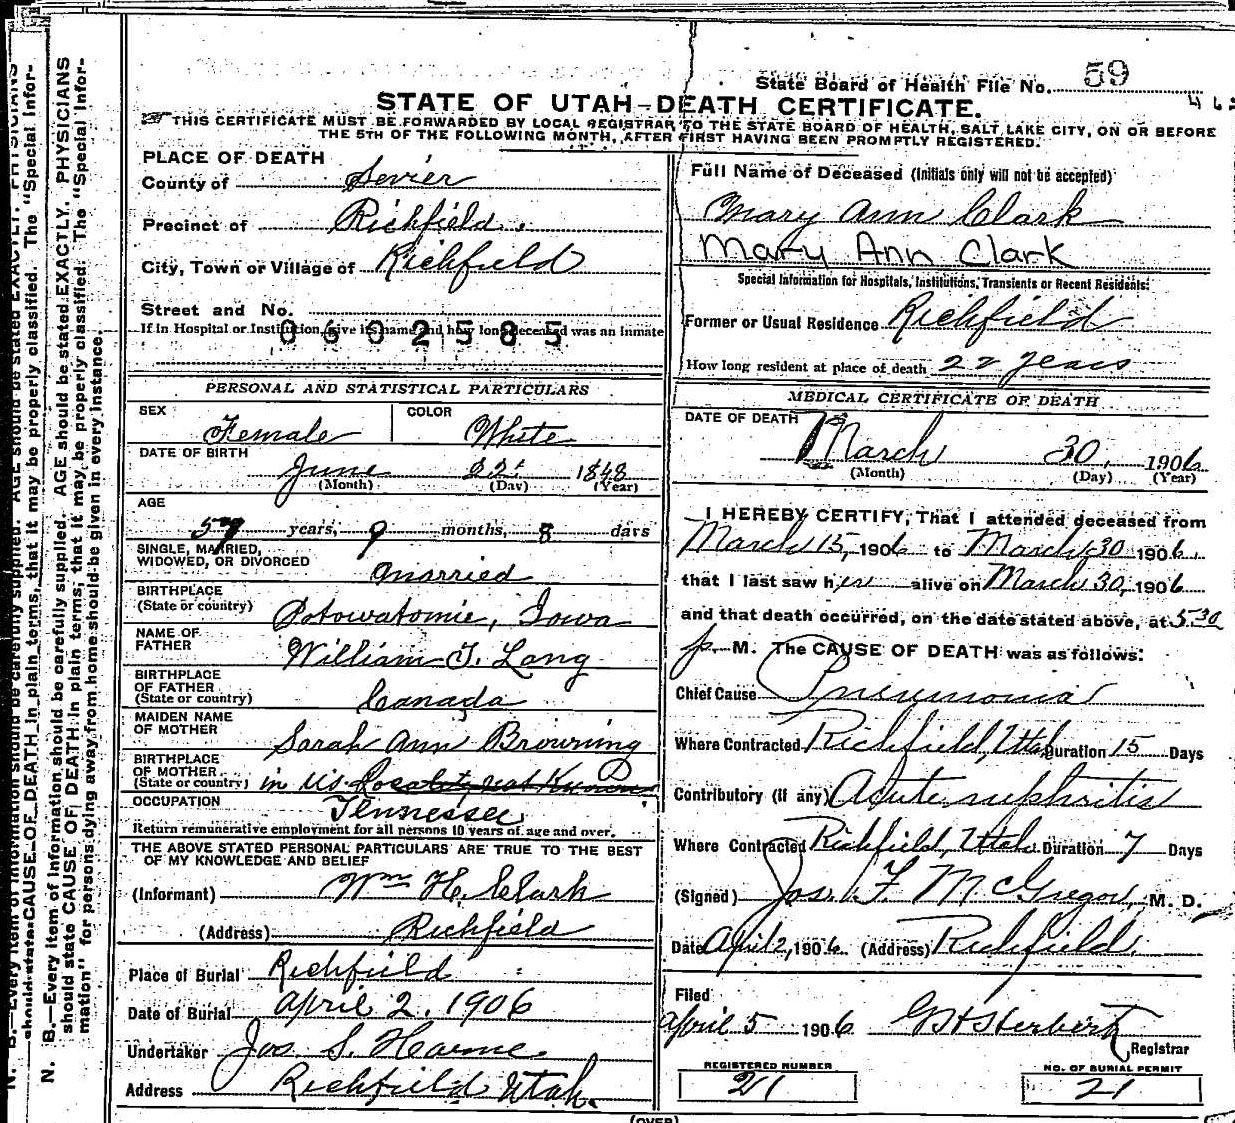 State Board of Health File No. 59
STATE OF UTAH-DEATH CERTIFICATE.
THIS CERTIFICATE MUST BE FORWARDED BY LOCAL REGISTRAR TO THE STATE BOARD OF HEALTH, SALT LAKE CITY, ON OR BEFORE
THE 5TH OF THE FOLLOWING MONTH, AFTER FIRST HAVING BEEN PROMPTLY REGISTERED.
PLACE OF DEATH
County of Sevier
Precinct of Richfield.
City, Town or Village of Richfield
Street and No.
If in Hospital or Institution, give its name and how long deceased was an inmate
0602585
PERSONAL AND STATISTICAL PARTICULARS
SEX Female COLOR White
DATE OF BIRTH June 22 1848
(Month) (Day) (Year)
AGE
57 years, 9 months, 8 days
SINGLE, MARRIED,
WIDOWED, OR DIVORCED Married
BIRTHPLACE
(State or country) Potowatomie, Iowa
NAME OF
FATHER William T. Lang
BIRTHPLACE
OF FATHER
(State or country) Canada
MAIDEN NAME
OF MOTHER Sarah Ann Browning
BIRTHPLACE
OF MOTHER
(State or country) in US. Locality not Known
Tennessee
OCCUPATION
Return remunerative employment for all persons 10 years of age and over.
THE ABOVE STATED PERSONAL PARTICULARS ARE TRUE TO THE BEST
OF MY KNOWLEDGE AND BELIEF
(Informant) Wm H. Clark
(Address) Richfield
Place of Burial Richfield
Date of Burial April 2. 1906
Undertaker Jos S. Horne.
Address Richfield Utah.
Full Name of Deceased (Initials only will not be accepted)
Mary Ann Clark
Mary Ann Clark
Special Information for Hospitals, Institutions, Transients or Recent Residents:
Former or Usual Residence Richfield
How long resident at place of death 22 years
MEDICAL CERTIFICATE OF DEATH
DATE OF DEATH
March 30, 1906
(Month) (Day) (Year)
I HEREBY CERTIFY, That I attended deceased from
March 15, 1906 to March 30 1906,
that I last saw her alive on March 30, 1906
and that death occurred, on the date stated above, at 5.30
p M. The CAUSE OF DEATH was as follows:
Chief Cause Pneumonia
Where Contracted Richfield, Utah Duration 15 Days
Contributory (if any) Acute nephritis
Where Contracted Richfield, Utah. Duration 7 Days
(Signed) Jos. F. McGregor, M. D.
Date April 2, 1906. (Address) Richfield.
Filed
April 5 1906 Herbert
Registrar
REGISTERED NUMBER
21
NO. OF BURIAL PERMIT
21
(OVER)
N. B.—Every item of information should be carefully supplied. AGE should be stated EXACTLY. PHYSICIANS
should state CAUSE OF DEATH in plain terms, that it may be properly classified. The "Special Infor-
N. B.—Every item of information should be carefully supplied. AGE should be stated EXACTLY. PHYSICIANS
should state CAUSE OF DEATH in plain terms, that it may be properly classified. The "Special Infor-
mation" for persons dying away from home should be given in every instance.